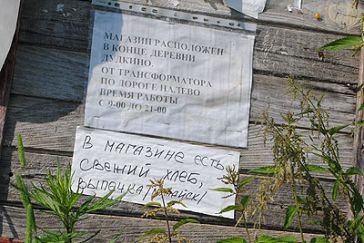 МАГАЗИН РАСПОЛОЖЕН
В КОНЦЕ ДЕРЕВНИ
ЛУДКИНО.
ОТ ТРАНСФОРМАТОРА
ПО ДОРОГЕ НАЛЕВО
ВРЕМЯ РАБОТЫ
С 9-00 ДО 21-00
В МАГАЗИНЕ ЕСТЬ
СВЕЖИЙ ХЛЕБ,
ВЫПЕЧКА